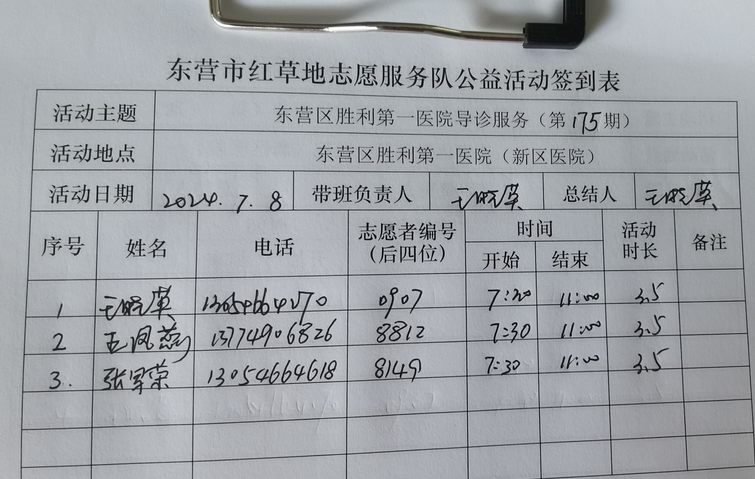 东营市红草地志愿服务队公益活动签到表
活动主题 东营区胜利第一医院导诊服务（第175期）
活动地点 东营区胜利第一医院（新区医院）
活动日期 2024.7.8 带班负责人 王晓英 总结人 王晓英
序号 姓名 电话 志愿者编号（后四位） 时间 开始 结束 活动时长 备注
1 王晓英 0907 7:30 11:00 3.5
2 王凤燕 13774906826 8812 7:30 11:00 3.5
3. 张军荣 13054664618 8149 7:30 11:00 3.5